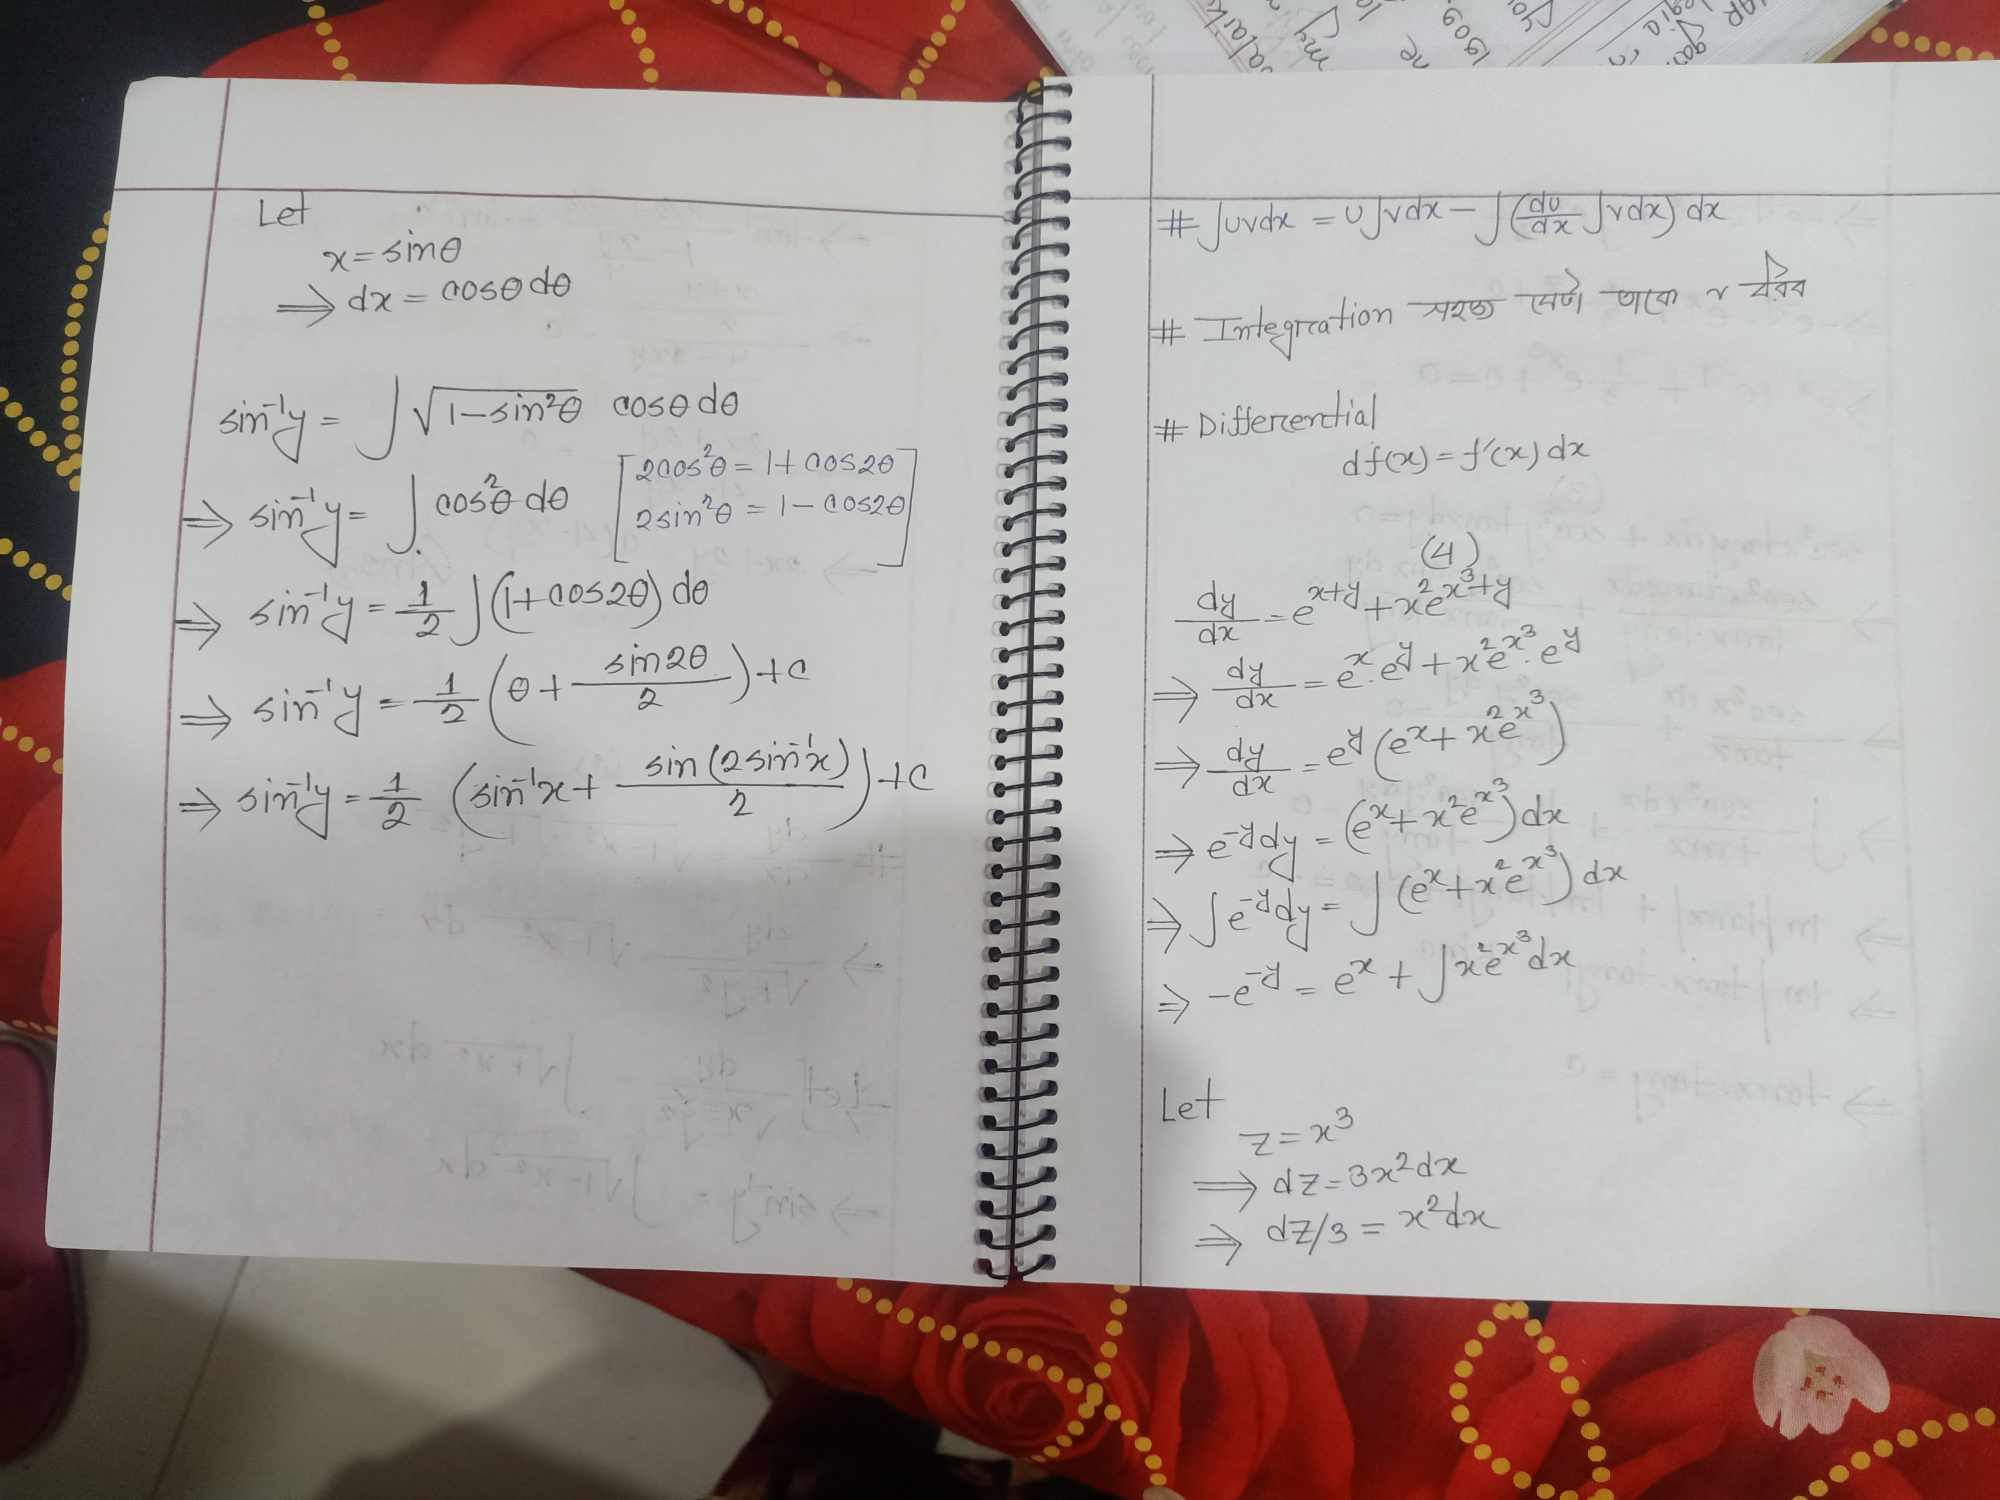 Let
x = sinθ
⇒ dx = cosθ dθ
sin⁻¹y = ∫ √(1-sin²θ) cosθ dθ
⇒ sin⁻¹y = ∫ cos²θ dθ [2cos²θ = 1+cos2θ
2sin²θ = 1-cos2θ]
⇒ sin⁻¹y = 1/2 ∫(1+cos2θ) dθ
⇒ sin⁻¹y = 1/2 (θ + sin2θ/2) + c
⇒ sin⁻¹y = 1/2 (sin⁻¹x + sin(2sin⁻¹x)/2) + c
# ∫uvdx = u∫vdx - ∫(du/dx ∫vdx) dx
# Integration সহজ v
# Differential
df(x) = f'(x) dx
(4)
dy/dx = e^(x+y) + x²e^(x³+y)
⇒ dy/dx = e^x.e^y + x²e^(x³).e^y
⇒ dy/dx = e^y (e^x + x²e^(x³))
⇒ e^(-y)dy = (e^x + x²e^(x³)) dx
⇒ ∫e^(-y)dy = ∫(e^x + x²e^(x³)) dx
⇒ -e^(-y) = e^x + ∫x²e^(x³)dx
Let
z = x³
⇒ dz = 3x²dx
⇒ dz/3 = x²dx